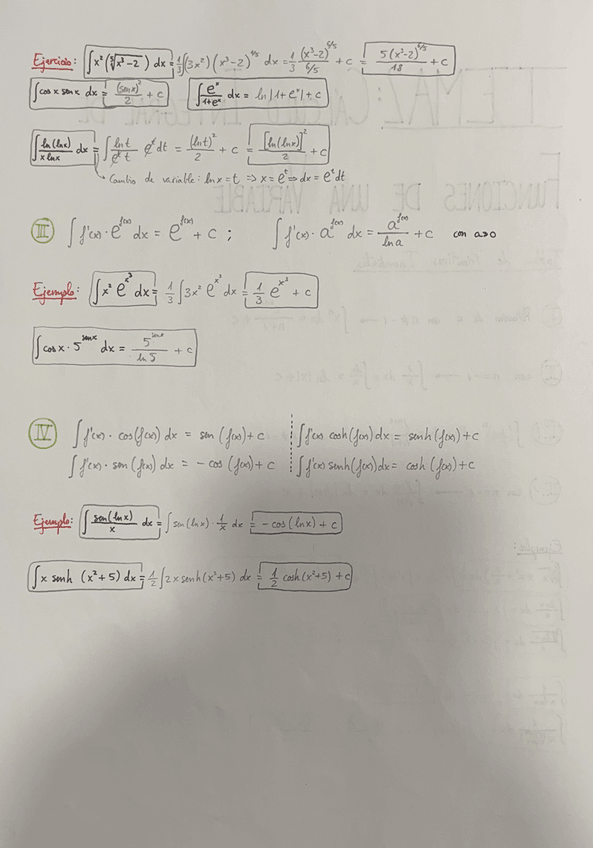 Ejercicio: ∫x²(⁵√x³-2) dx = 1/3 ∫(3x²)(x³-2)^(1/5) dx = 1/3 (x³-2)^(6/5)/(6/5) + c = 5(x³-2)^(6/5)/18 + c
∫cos x sen x dx = (sen x)²/2 + c ∫e^x/(1+e^x) dx = ln|1+e^x| + c
∫ln(lnx)/(x lnx) dx = ∫ln t/(e^t t) e^t dt = (ln t)²/2 + c = [ln(lnx)]²/2 + c
Cambio de variable: lnx = t ⇒ x = e^t ⇒ dx = e^t dt
III ∫f'(x)·e^f(x) dx = e^f(x) + c ; ∫f'(x)·a^f(x) dx = a^f(x)/ln a + c con a>0
Ejemplo: ∫x² e^x³ dx = 1/3 ∫3x² e^x³ dx = 1/3 e^x³ + c
∫cos x · 5^senx dx = 5^senx/ln 5 + c
IV ∫f'(x)·cos(f(x)) dx = sen (f(x)) + c ∫f'(x) cosh(f(x)) dx = senh (f(x)) + c
∫f'(x)·sen (f(x)) dx = -cos (f(x)) + c ∫f'(x) senh(f(x)) dx = cosh (f(x)) + c
Ejemplo: ∫sen(lnx)/x dx = ∫sen(lnx)·1/x dx = -cos(lnx) + c
∫x senh (x²+5) dx = 1/2 ∫2x senh(x²+5) dx = 1/2 cosh(x²+5) + c